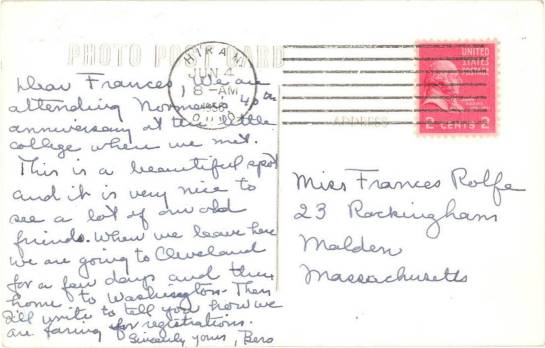 PHOTO POST CARD
HIRAM
JUN 4
8-AM
1956
OHIO
UNITED
STATES
POSTAGE
2 CENTS 2
ADDRESS
Dear Frances, We are
attending Norman's 40th
anniversary at the little
college where we met.
This is a beautiful spot
and it is very nice to
see a lot of our old
friends. When we leave here
we are going to Cleveland
for a few days and then
home to Washington. Then
I'll write to tell you how we
are faring for registrations.
Sincerely yours,
Miss Frances Rolfe
23 Rockingham
Malden
Massachusetts